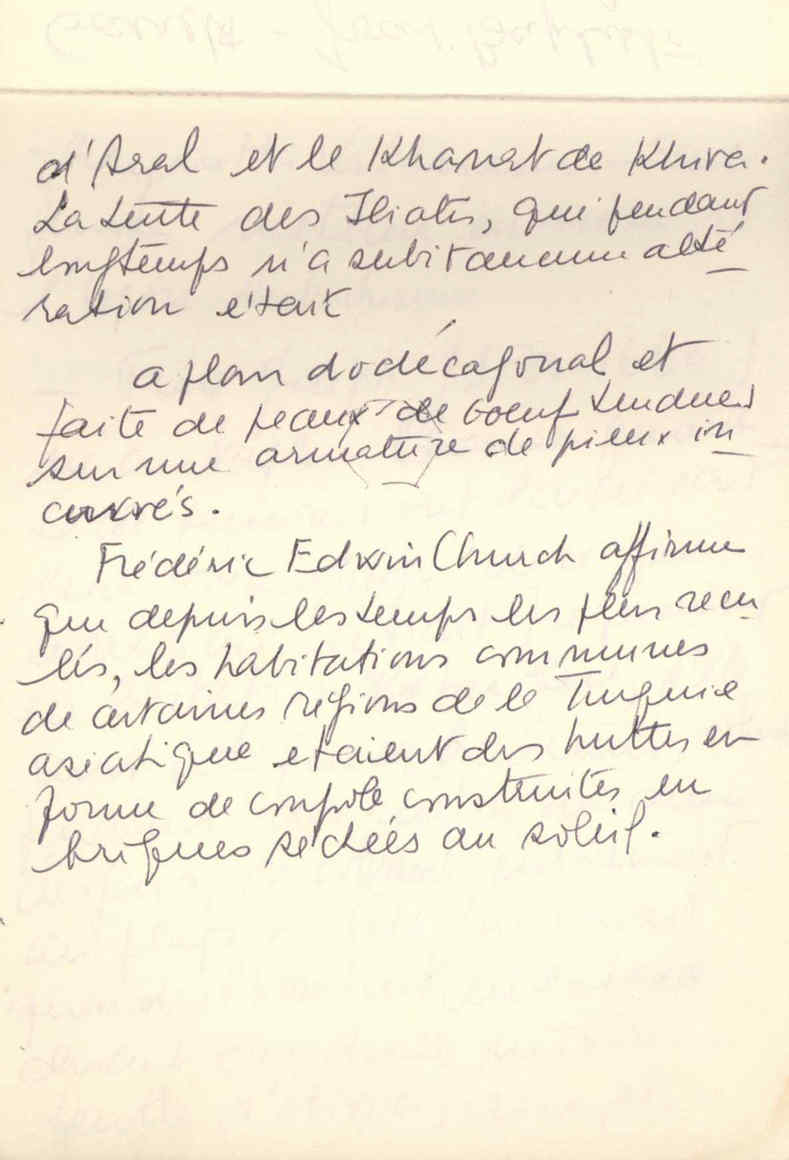 d'Aral et le Khanat de Khiva.
La tente des Iliates, qui pendant
longtemps n'a subit aucune alté
ration était
a plan dodécagonal et
faite de peaux de boeuf tendues
sur une armature de pieux in
curvés.
Frédéric Edwin Church affirme
que depuis les temps les plus recu
lés, les habitations communes
de certaines régions de la Turquie
asiatique etaient des huttes en
forme de coupole construites en
briques séchées au soleil.